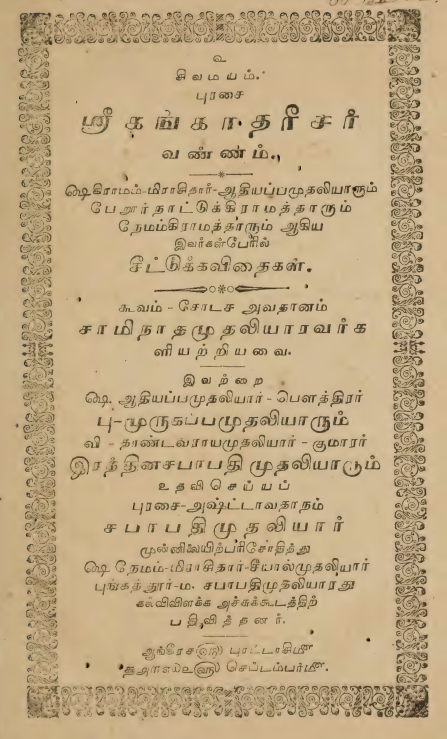 உ
சிவமயம்.
புரசை
ஸ்ரீ கங்காதரீசர்
வண்ணம்.,
ஷெகிராமம்-மிராசிதார்-ஆதியப்பமுதலியாரும்
பேறூர்நாட்டுக்கிராமத்தாரும்
நேமம்கிராமத்தாரும் ஆகிய
இவர்கள்பேரில்
சீட்டுக்கவிதைகள்.
கூவம் - சோடச அவதானம்
சாமிநாதமுதலியாரவர்க
ளியற்றியவை.
இவற்றை
ஷெ ஆதியப்பமுதலியார் - பௌத்திரர்
பு-முருகப்பமுதலியாரும்
வி - தாண்டவராயமுதலியார் - குமாரர்
இரத்தினசபாபதி முதலியாரும்
உதவிசெய்யப்
புரசை-அஷ்ட்டாவதாநம்
சபாபதிமுதலியார்
முன்னிலையிற்பரிசோதித்து
ஷெ நேமம்-மிராசிதார்-சீயால்முதலியார்
புங்கத்தூர்-ம. சபாபதிமுதலியாரது
கல்விவிளக்க அச்சுக்கூடத்திற்
பதிவித்தனர்.
ஆங்கீரச௵ புரட்டாசி௴
செப்டம்பர்௴.